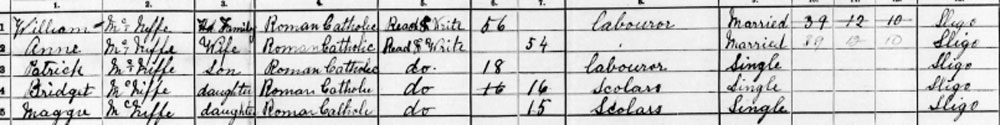 1. 2. 3. 4. 5. 6. 7. 8.
1 William McNiffe Hd Family Roman Catholic Read & Write 56 Labourer Married 39 12 10 Sligo
2 Anne McNiffe Wife Roman Catholic Read & Write 54 Married 39 12 10 Sligo
3 Patrick McNiffe Son Roman Catholic do. 18 Labourer Single Sligo
4 Bridget McNiffe daughter Roman Catholic do 16 16 Scolars Single Sligo
5 Maggie McNiffe daughter Roman Catholic do 15 Scolars Single Sligo